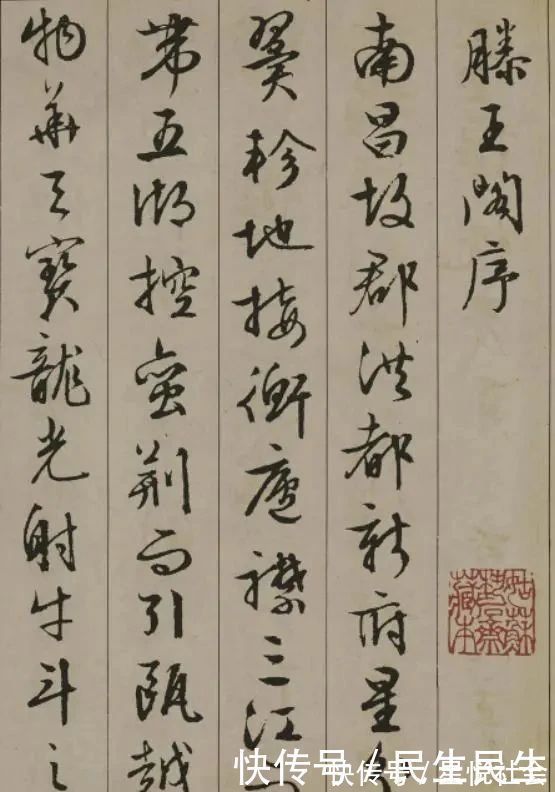 滕王閣序
南昌故郡洪都新府星分
翼軫地接衡廬襟三江
帶五湖控蠻荊而引甌越
物華天寶龍光射牛斗之
姑蘇
藏本
快传号/民生民生
快传号/